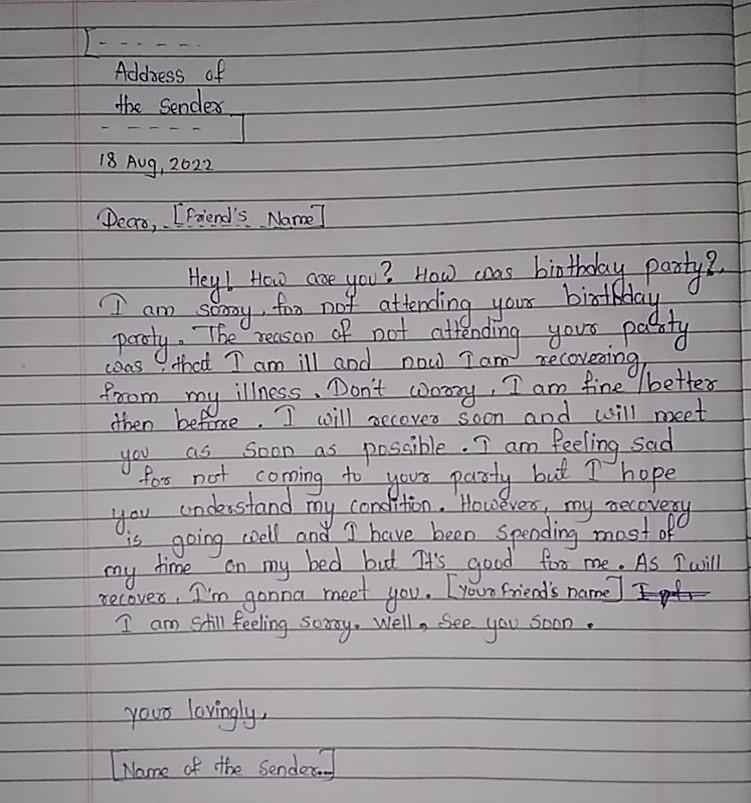 [- - - - - -
Address of
the Sender
- - - - - ]
18 Aug, 2022
Dear, [friend's Name]
Hey! How are you? How was birthday party?.
I am sorry, for not attending your birthday
party. The reason of not attending your party
was that I am ill and now I am recovering
from my illness. Don't worry, I am fine/better
then before. I will recover soon and will meet
you as soon as possible. I am feeling sad
for not coming to your party but I hope
you understand my condition. However, my recovery
is going well and I have been spending most of
my time on my bed but It's good for me. As I will
recover, I'm gonna meet you. [your friend's name]
I am still feeling sorry. Well, See you soon.
your lovingly,
[Name of the Sender...]